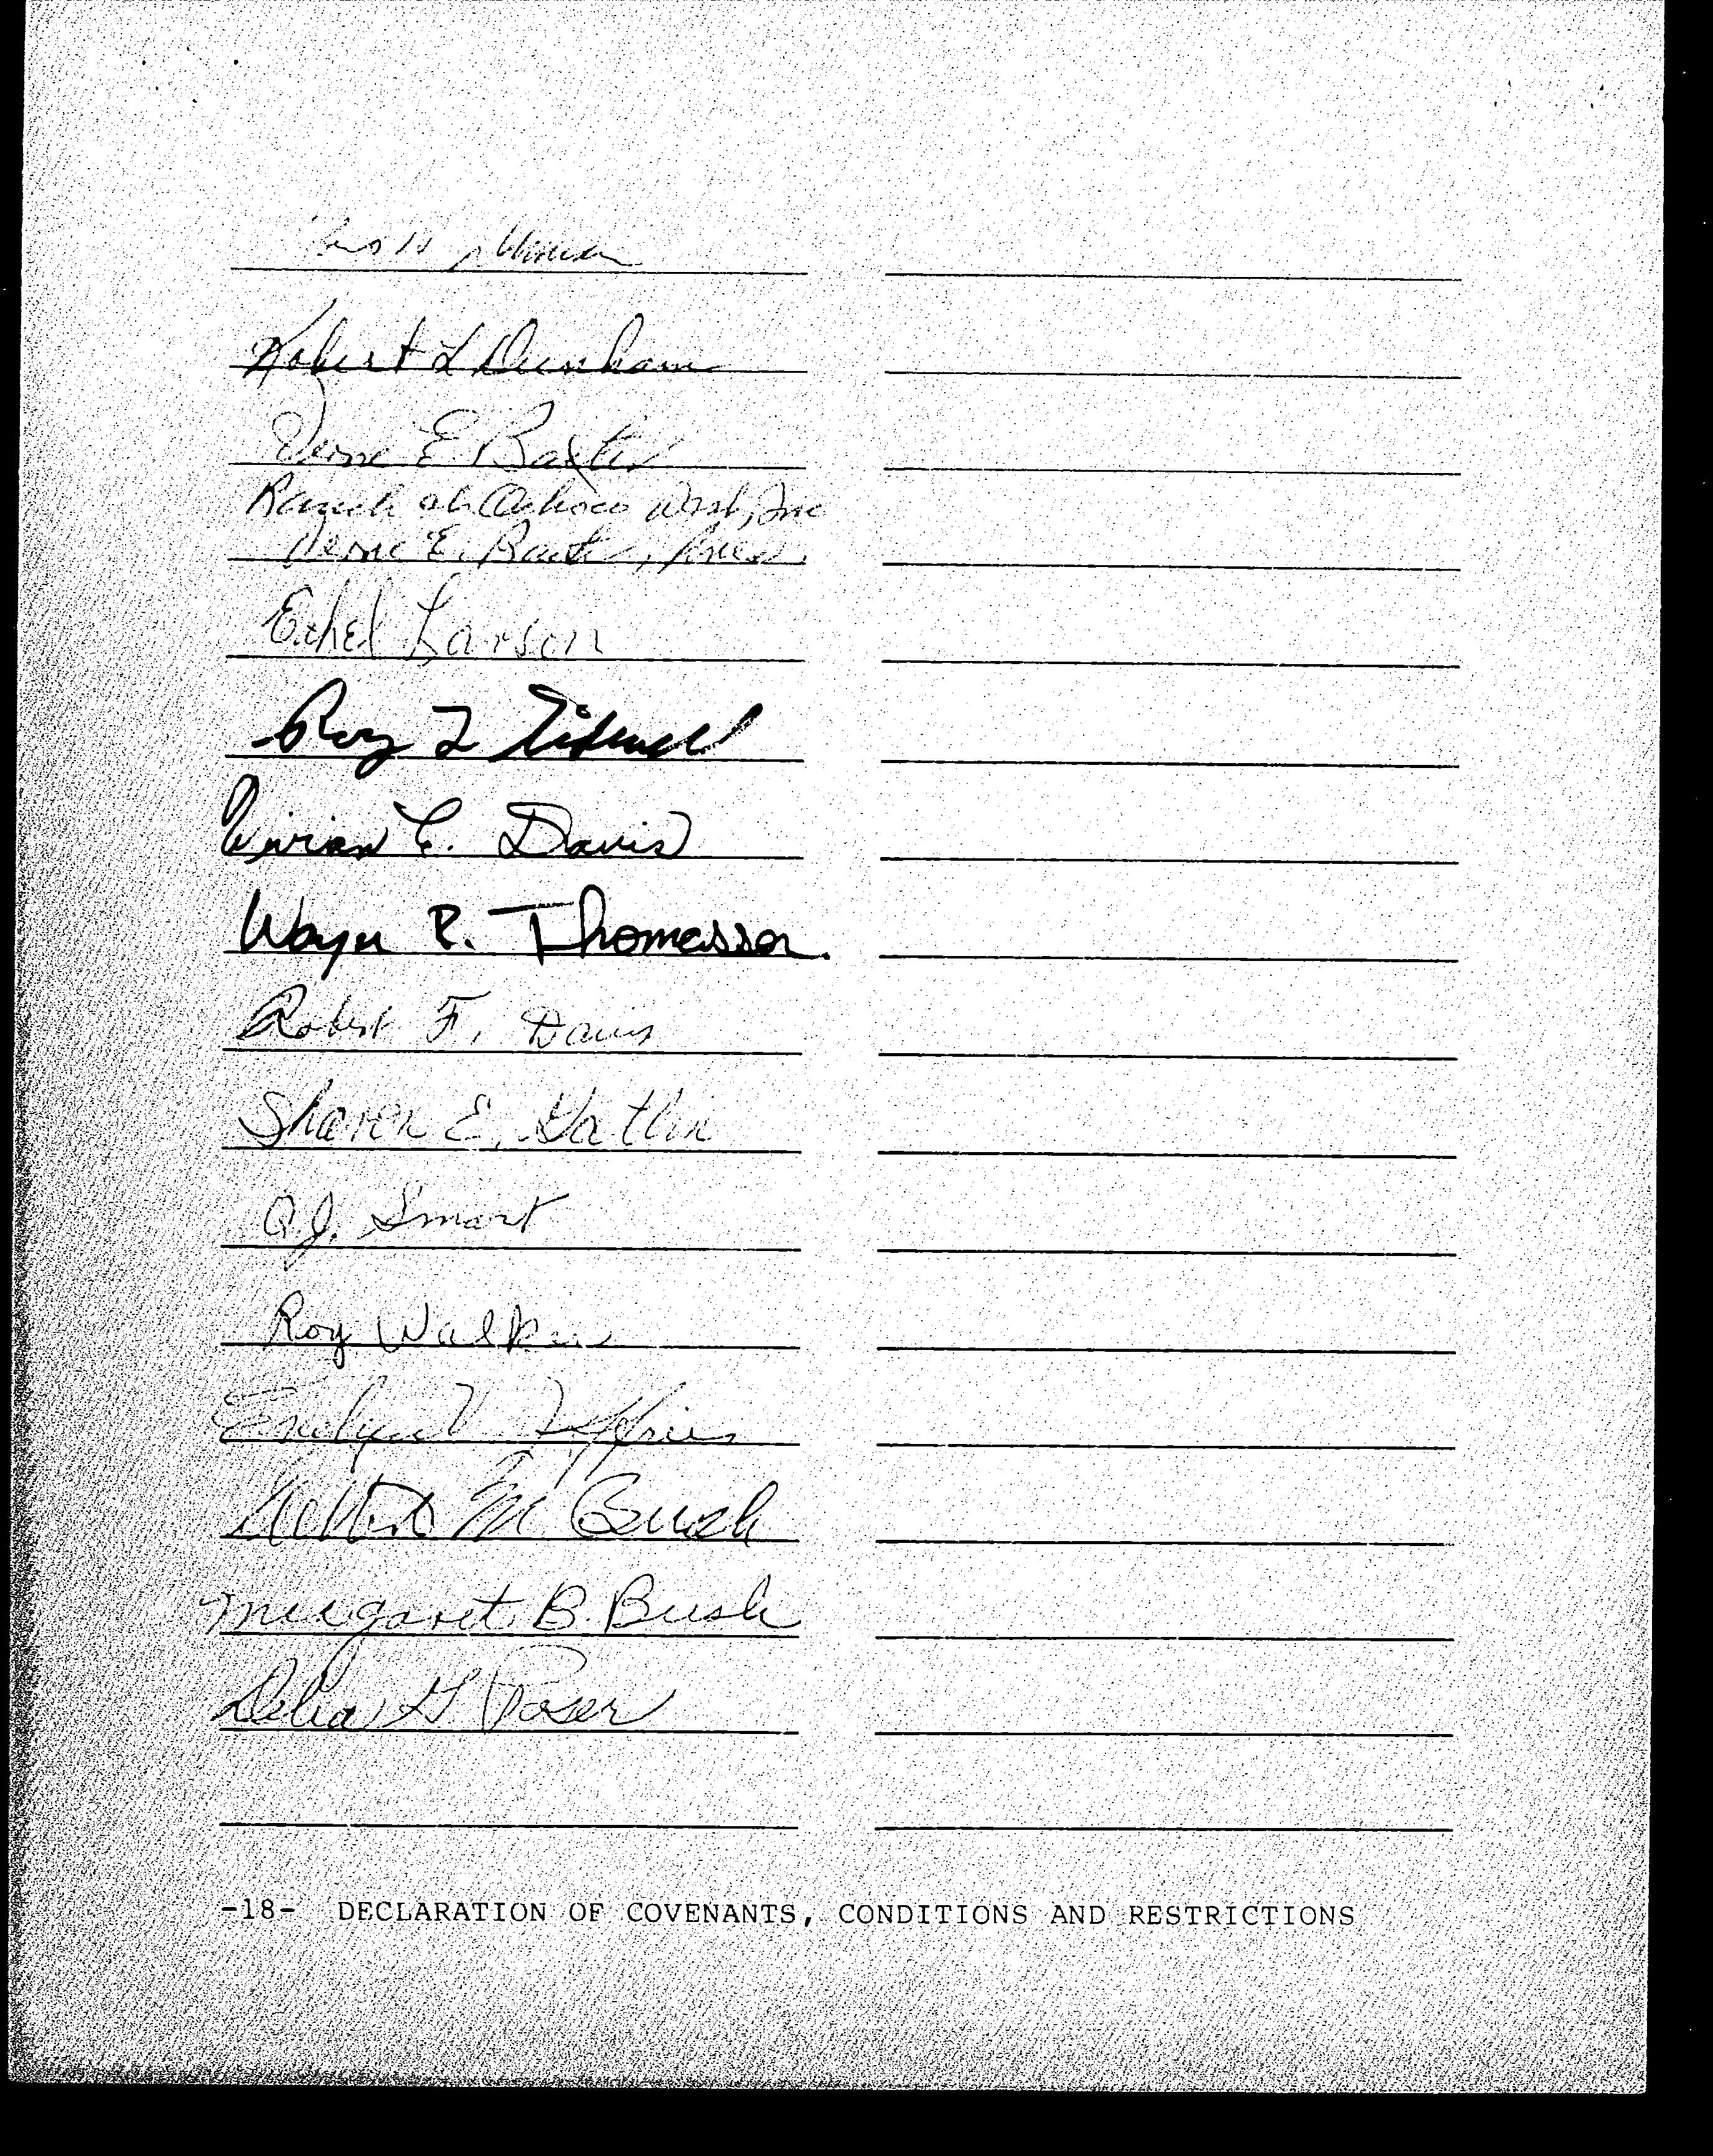 Robert L Dunham
Verne E. Baxter
Ranch at Ochoco West, Inc
Verne E. Baxter, Pres.
Ethel Larson
Roy L Tidwell
Vivian E. Davis
Wayne R. Thomasson
Robert F. Davis
Sharon E. Gatlin
A.J. Smart
Roy Walker
M Bush
Margaret B. Bush
Delia G Poser
-18- DECLARATION OF COVENANTS, CONDITIONS AND RESTRICTIONS